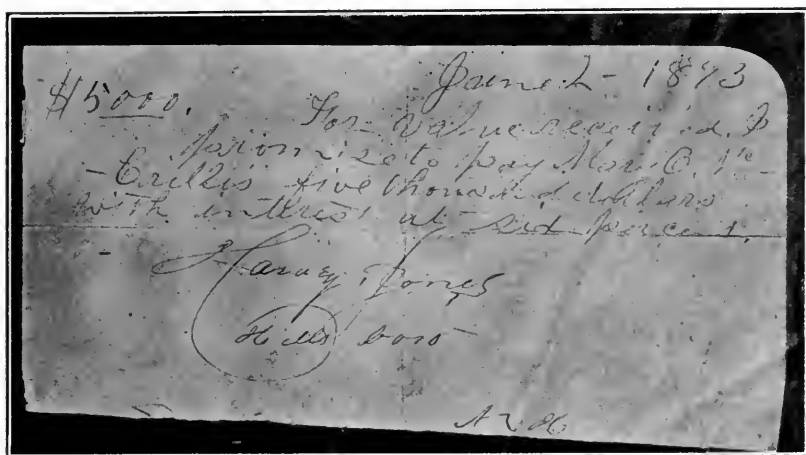 June 2 - 1873
$5000.
For value received, I
promise to pay Mary C.
five thousand dollars
with intrest at six per cent,
Harvey Jones
Hillsboro
N H